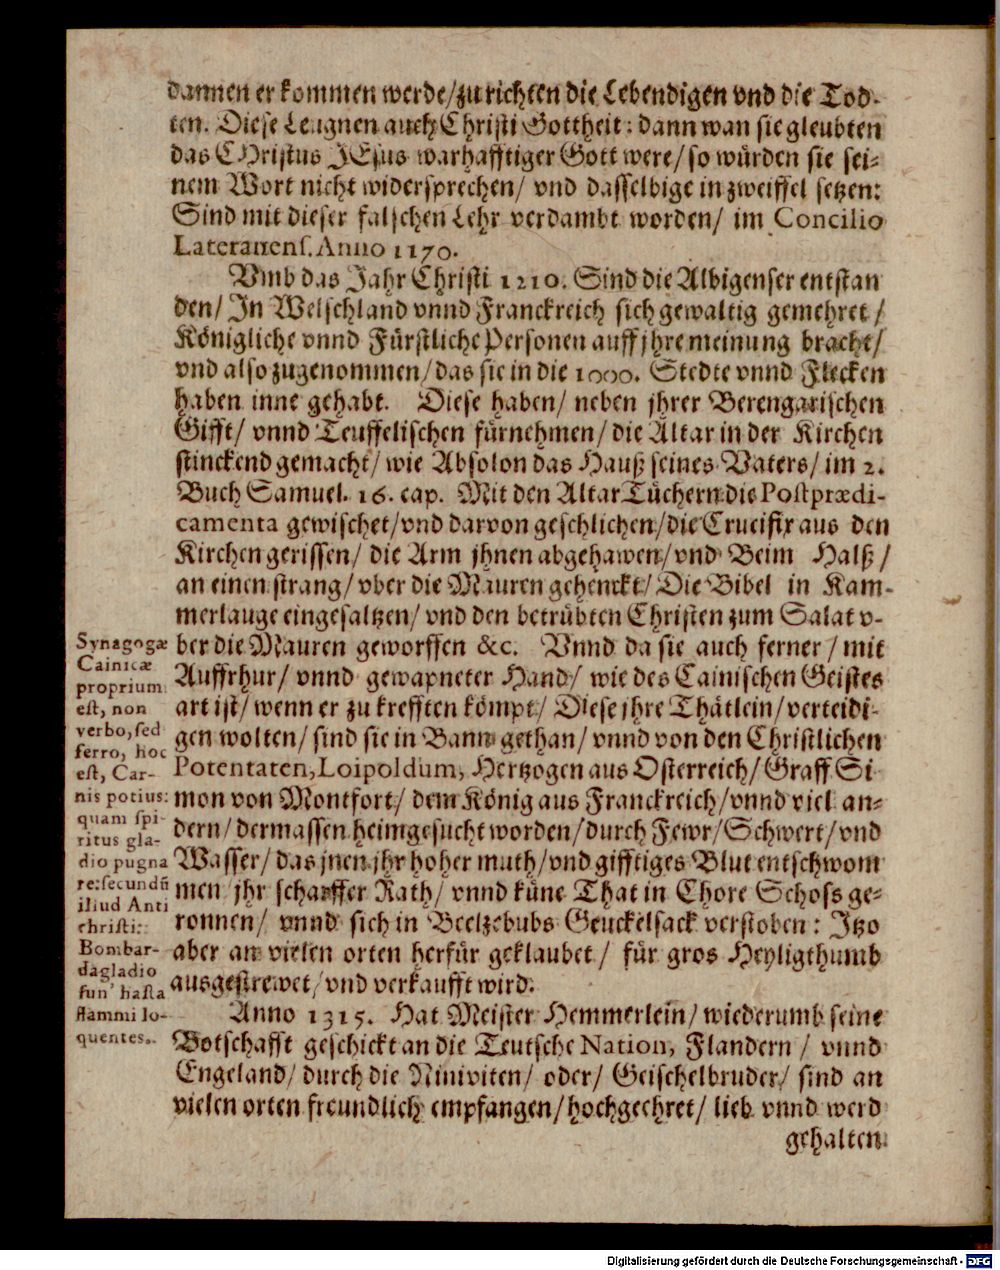 dannen er kommen werde/zu richten die Lebendigen vnd die Tod-
ten. Diese Leugnen auch Christi Gottheit: dann wan sie gleubten
das CHristus JEsus warhafftiger Gott were/ so würden sie sei-
nem Wort nicht widersprechen/ vnd dasselbige in zweiffel setzen:
Sind mit dieser falschen Lehr verdambt worden/ im Concilio
Lateranens. Anno 1170.
Vmb das Jahr Christi 1210. Sind die Albigenser entstan
den/ In Welschland vnnd Franckreich sich gewaltig gemehret/
Königliche vnnd Fürstliche Personen auff jhre meinung bracht/
vnd also zugenommen/das sie in die 1000. Stedte vnnd Flecken
haben inne gehabt. Diese haben/ neben jhrer Berengarischen
Gifft/ vnnd Teuffelischen fürnehmen/ die Altar in der Kirchen
stinckend gemacht/ wie Absolon das Hauß seines Vaters/ im 2.
Buch Samuel. 16. cap. Mit den Altar Tüchern die Postprædi-
camenta gewischet/vnd darvon geschlichen/die Crucifix aus den
Kirchen gerissen/ die Arm jhnen abgehawen/vnd Beim Halß/
an einen strang/ vber die Mauren gehenckt/ Die Bibel in Kam-
merlauge eingesaltzen/ vnd den betrübten Christen zum Salat v-
ber die Mauren geworffen &c. Vnnd da sie auch ferner/ mit
Auffrhur/ vnnd gewapneter Hand/ wie des Cainischen Geistes
art ist/ wenn er zu krefften kömpt/ Diese jhre Thätlein/verteidi-
gen wolten/ sind sie in Bann gethan/ vnnd von den Christlichen
Potentaten, Loipoldum, Hertzogen aus Osterreich/ Graff Si-
mon von Montfort/ dem König aus Franckreich/vnnd viel an-
dern/ dermassen heimgesucht worden/durch Fewr/Schwert/vnd
Wasser/ das jnen jhr hoher muth/vnd gifftiges Blut entschwom
men jhr scharffer Rath/ vnnd küne That in Chore Schoss ge-
ronnen/ vnnd sich in Beelzebubs Geuckelsack verstoben: Itzo
aber an vielen orten herfür geklaubet/ für gros Heyligthumb
ausgestrewet/ vnd verkaufft wird.
Anno 1315. Hat Meister Hemmerlein/ wiederumb seine
Botschafft geschickt an die Teutsche Nation, Flandern/ vnnd
Engeland/ durch die Niniviten/ oder/ Geischelbruder/ sind an
vielen orten freundlich empfangen/hochgeehret/ lieb vnnd werd
gehalten
Synagogæ
Cainicæ
proprium
est, non
verbo, sed
ferro, hoc
est, Car-
nis potius:
quam spi-
ritus gla-
dio pugna
re: secundū
illud Anti
christi:
Bombar-
da gladio
fun' hasta
flammi lo-
quentes.
Digitalisierung gefördert durch die Deutsche Forschungsgemeinschaft - DFG